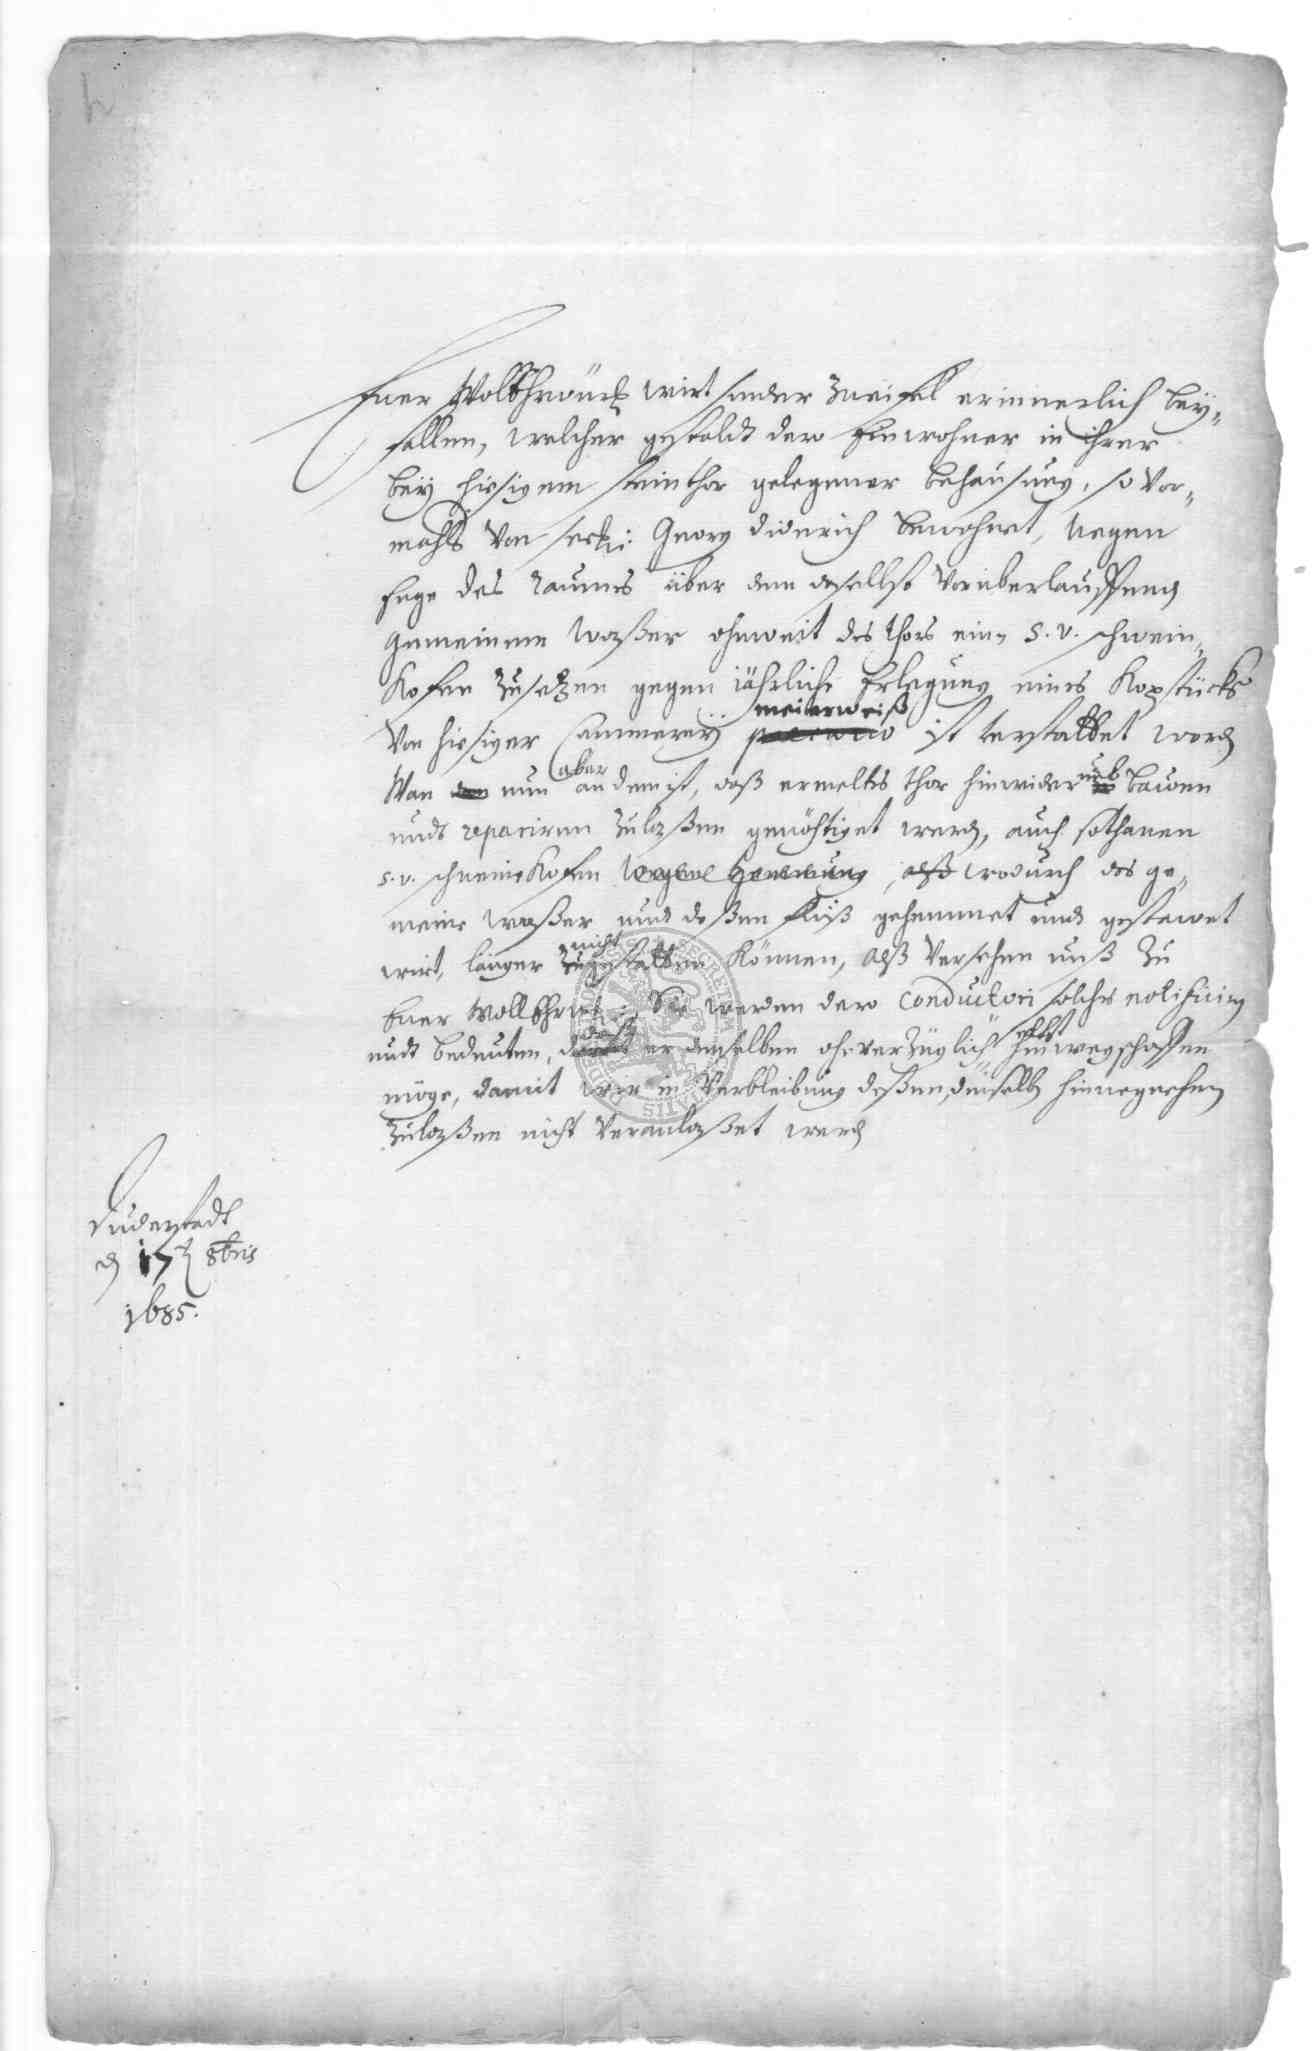 Euer WollEhrwürd wirt sonder Zweifel erinnerlich bey-
fallen, welcher gestaldt dero Einwohner in ihrer
bey hiesigem steinthor gelegener behausung, so vor-
mahls von Georg Diderich bewohnet, wegen
Enge des raumes über dem daselbst vorüberlauffend
gemeinem waßer ohnweit des thors ein s. v. schwein-
kofen zusetzen gegen jährliche Erlegung eines Kopstücks
von hiesiger Cammerey meierweiß ist verstattet word
Wan nun aber an dem ist, daß ermeltes thor hinwider bawen
undt repariren zulaßen genöhtiget werd, auch sothanen
s. v. schweinekofen wegen hemmung, alß wodurch das ge-
meine waßer und deßen fluß gehemmet und gestawet
wirt, länger nicht gestatten können, alß versehen unß zu
Euer WollEhrw: Sie werden dero Conductori solches notificiren
undt bedeuten, daß er denselben ohnverzüglich hinwegschaffen
möge, damit wir in Verbleibung deßen, denselb hinwegnehmen
zulaßen nicht veranlaßet werd
Duderstadt
d 17 8bris
1685.